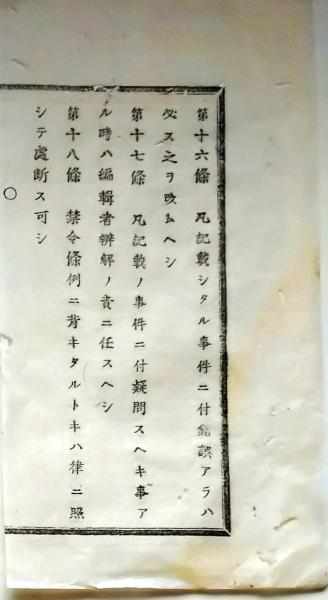 第十六條 凡記載シタル事件ニ付錯誤アラハ
必ス之ヲ改ムヘシ
第十七條 凡記載ノ事件ニ付疑問スヘキ事ア
ル時ハ編輯者辨解ノ責ニ任スヘシ
第十八條 禁令條例ニ背キタルトキハ律ニ照
シテ處断ス可シ
○